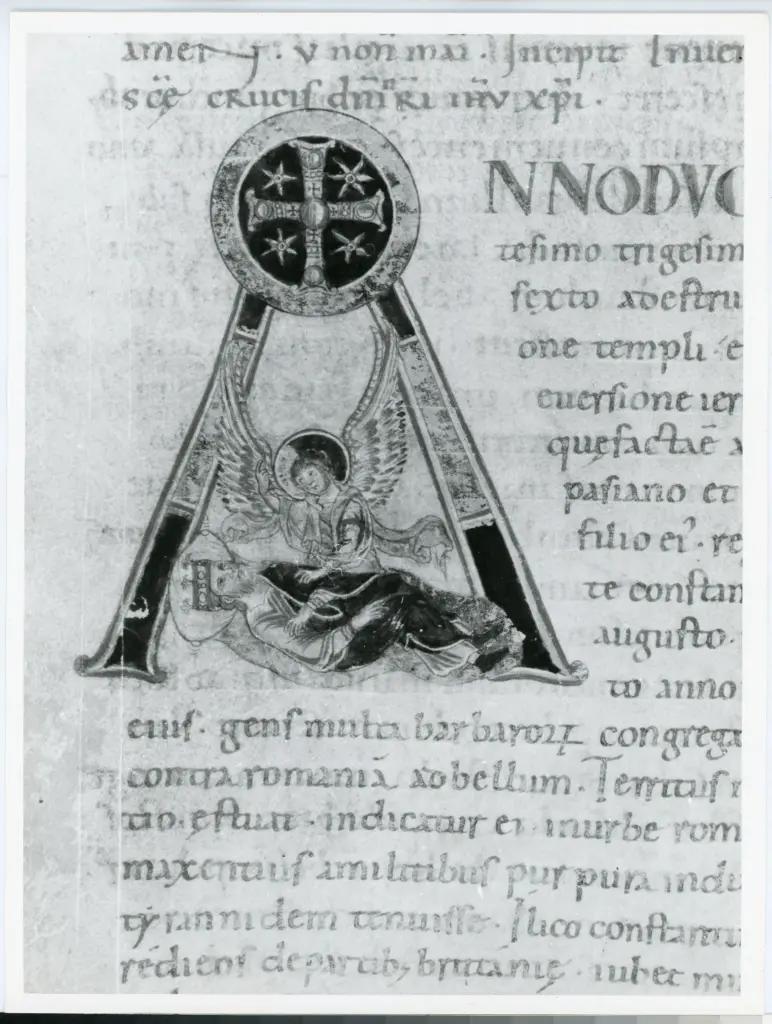 v non̄ mai · Incipit Inuen
sc̄ę crucis dn̄i nr̄i ih̄v xp̄i ·
ANNO DVC
tesimo trigesim
sexto a destru
one templi · e
euersione ier
quę facta ē a
pasiano et
filio ei' · re
te constan
augusto ·
to anno
eius · gens multa barbaroꝝ congrega
contra romaniā ad bellum · Territus
indicatur ei in urbe rom
maxentius a militibus purpura indu
tyrannidem tenuisse · Ilico constantin
rediens de partib; brittanię · iubet